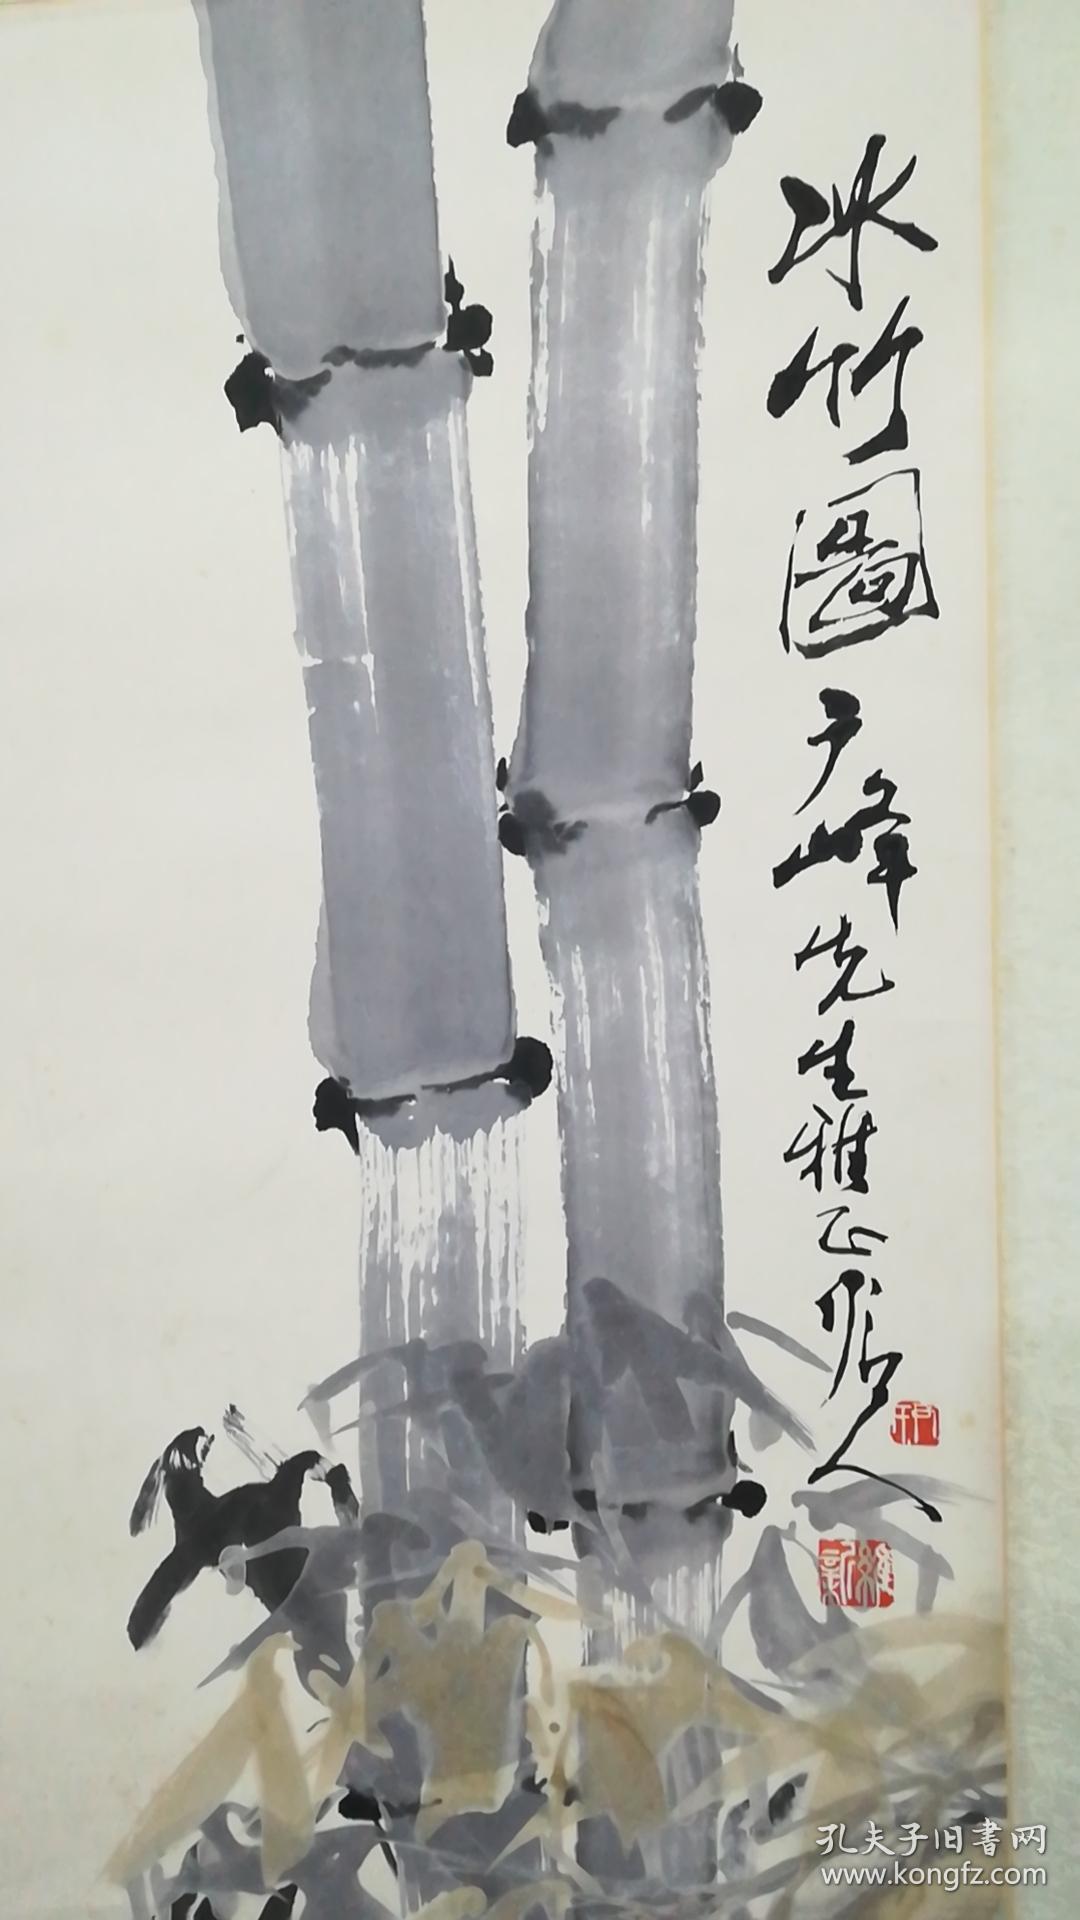 冰竹圖广峰先生雅正
維新
孔夫子旧書网
www.kongfz.com